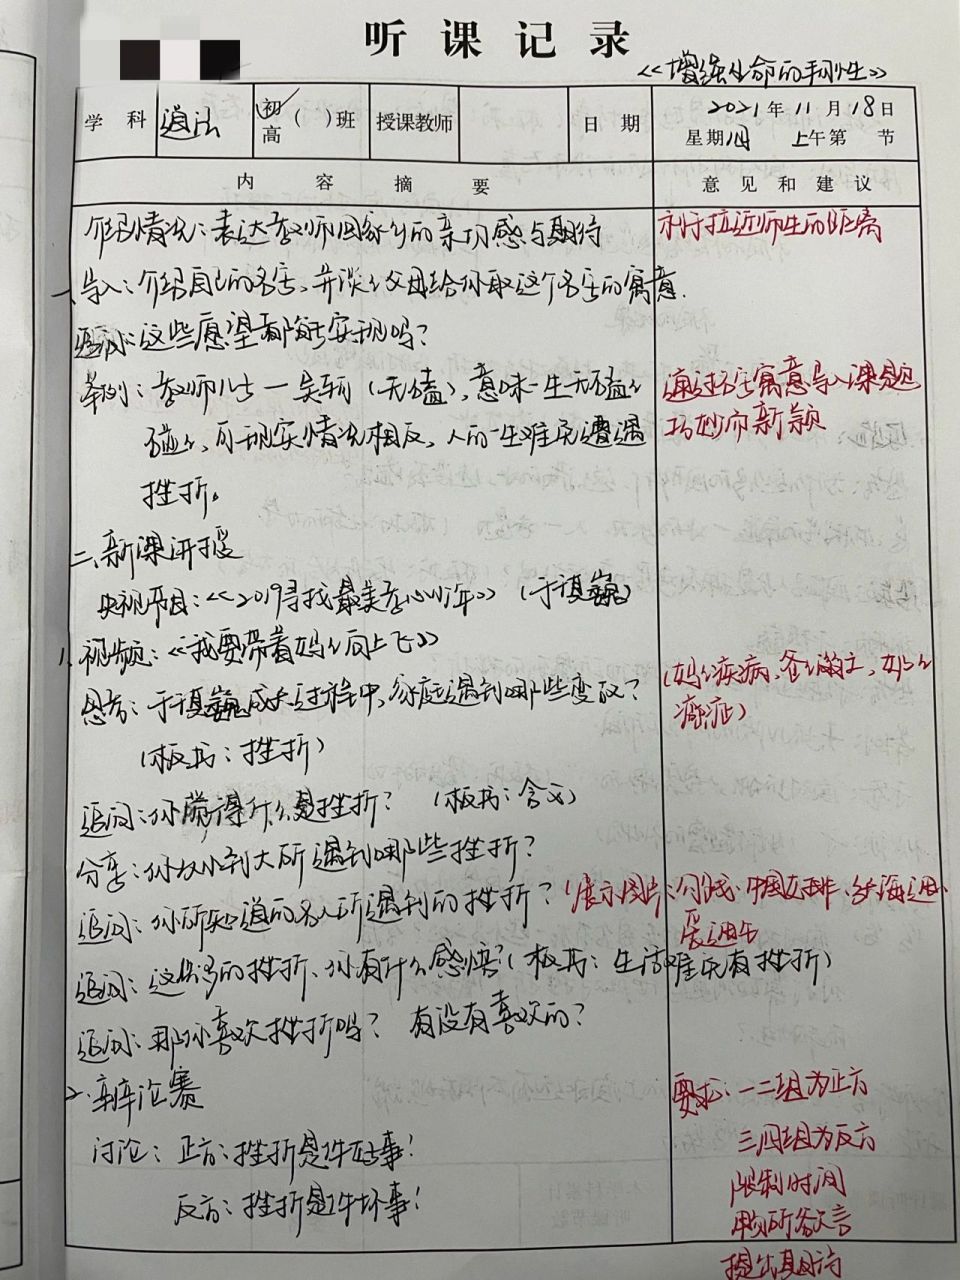 听课记录
《增强生命的韧性》
学 科 道法 初 高 ( )班 授课教师 日 期 2021年 11月 18日
星期四 上午第 节
内 容 摘 要 意 见 和 建 议
介绍情况：表达教师回家乡的亲切感与期待 利于拉近师生的距离
一、导入：介绍自己的名字，并谈谈父母给你取这个名字的寓意.
疑问：这些愿望都能实现吗？
举例：教师儿子一 （无磕），意味一生无磕磕 通过名字寓意导入课题
碰碰，可现实情况相反，人的一生难免遭遇 巧妙而新颖
挫折。
二、新课讲授
央视节目：《2019寻找最美孝心少年》（于 巍）
1、视频：《我要带着妈妈向上飞》
思考：于 巍成长过程中，家庭遇到哪些变故？ （妈妈疾病、爸爸 、妈妈
（板书：挫折） 癌症）
追问：你觉得什么是挫折？ （板书：含义）
分享：你从小到大所遇到哪些挫折？
追问：你所知道的名人所遇到的挫折？ （展示图片： 、中国女排、 海迪、
爱迪生
追问：这么多的挫折、你有什么感悟？（板书：生活难免有挫折）
追问：那你喜欢挫折吗？ 有没有喜欢的？
2、辩论赛 要求：一二组为正方
讨论：正方：挫折是件好事！ 三四组为反方
反方：挫折是件坏事！ 限制时间
发言